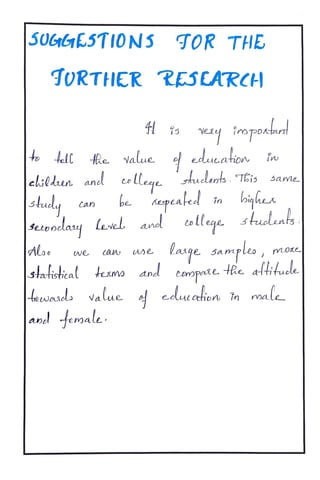 SUGGESTIONS FOR THE
FURTHER RESEARCH
It is very important
to tell the value of education in
children and college students. This same
study can be repeated in higher
secondary level and college students.
Also we can use large samples, more
statistical terms and compare the attitude
towards value of education in male
and female.